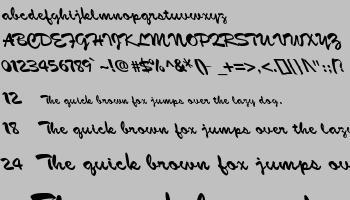 abcdefghijklmnopqrstuvwxyz
ABCDEFGHIJKLMNOPQRSTUVWXYZ
0123456789` ~!@#$%^&*() -_+=>,<.[]{}|\/"':;?
12 The quick brown fox jumps over the lazy dog.
18 The quick brown fox jumps over the lazy
24 The quick brown fox jumps ov